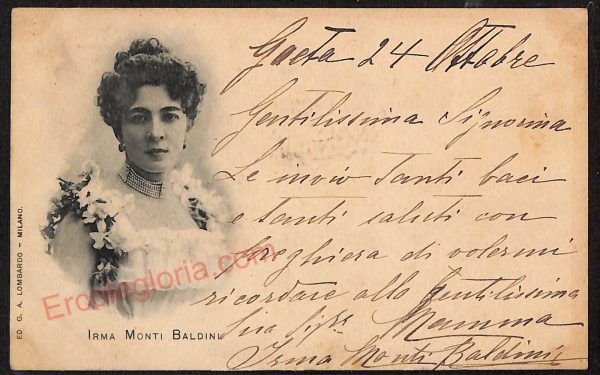 Gaeta 24 Ottobre
Gentilissima Signorina
Le invio tanti baci
e tanti saluti con
preghiera di volermi
ricordare alla gentilissima
Sua Sigra Mamma
Irma Monti Baldini
IRMA MONTI BALDINI
ED. G. A. LOMBARDO – MILANO.
Ercolegloria.com